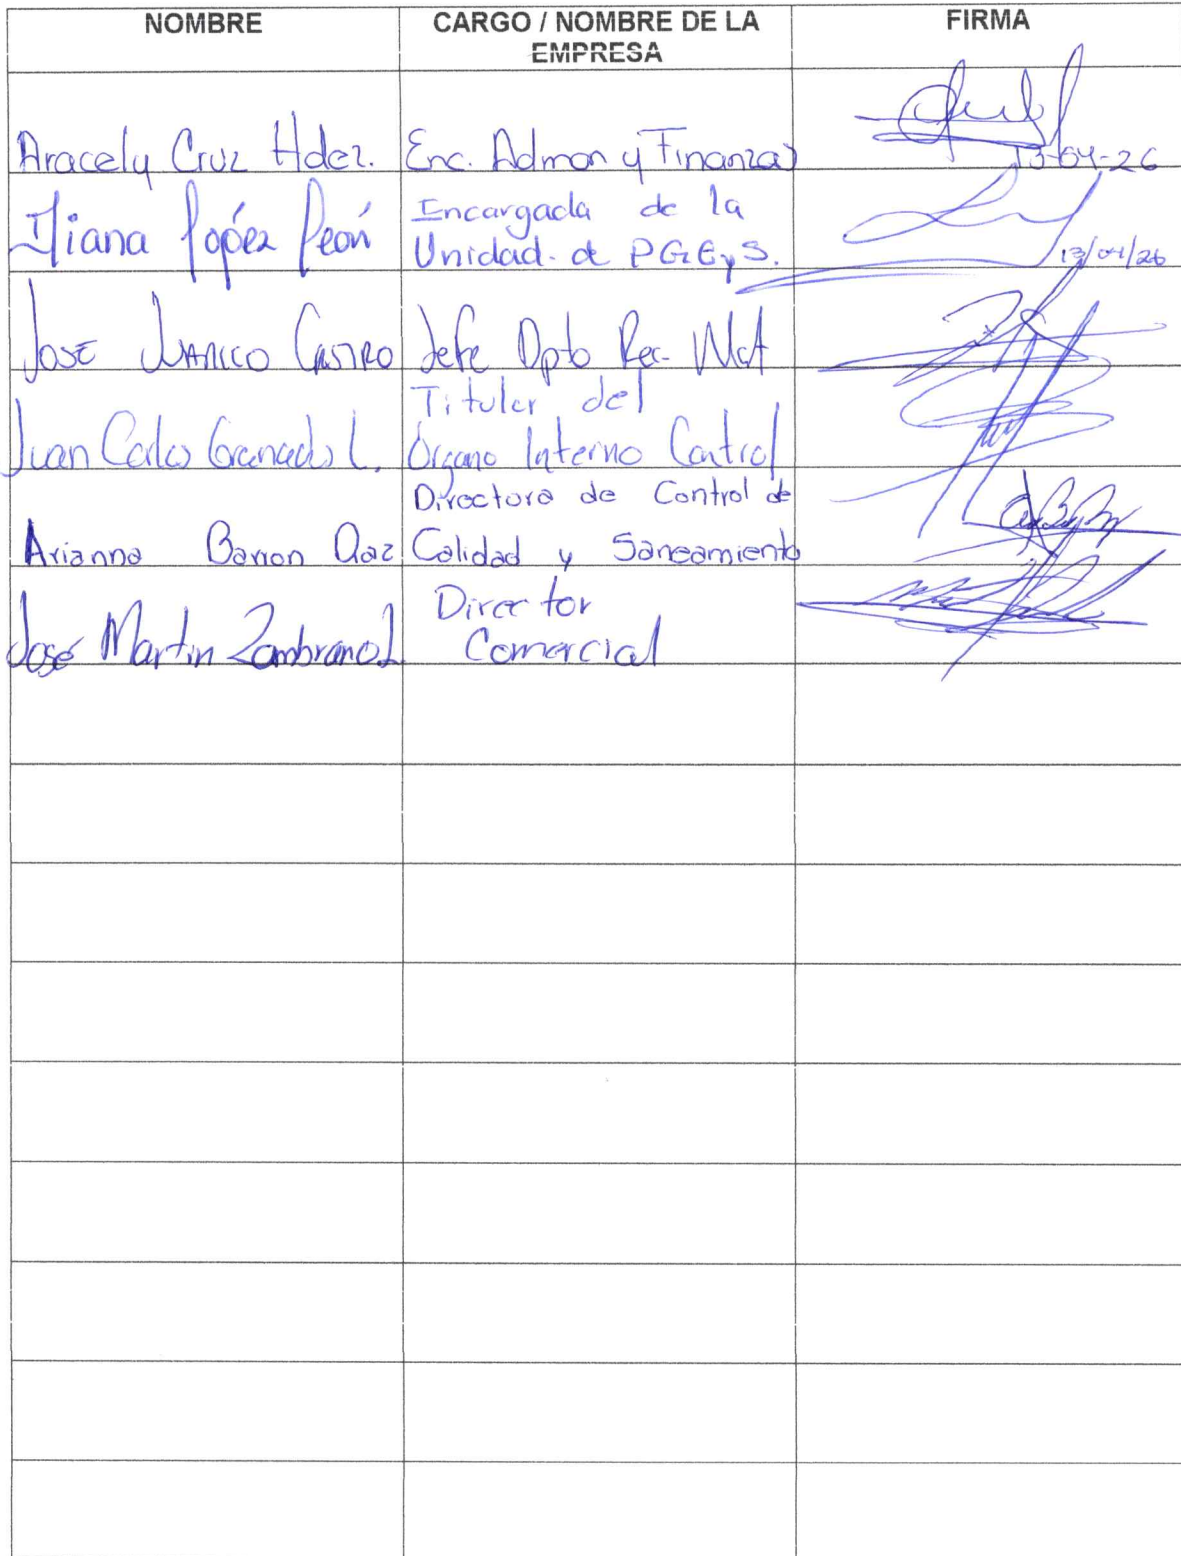 NOMBRE
CARGO / NOMBRE DE LA
EMPRESA
FIRMA
Aracely Cruz Hdez.
Enc. Admon y Finanzas
13-04-26
Iliana López León
Incargada de la
Unidad. de PGIEyS.
13/04/26
José Castro
Jefe Dpto Rec. Mat
Juan Carlos Granados L.
Titular del
Órgano Interno Control
Arianna Barron Diaz
Directora de Control de
Calidad y Saneamiento
José Martin Zambrano L
Director
Comercial